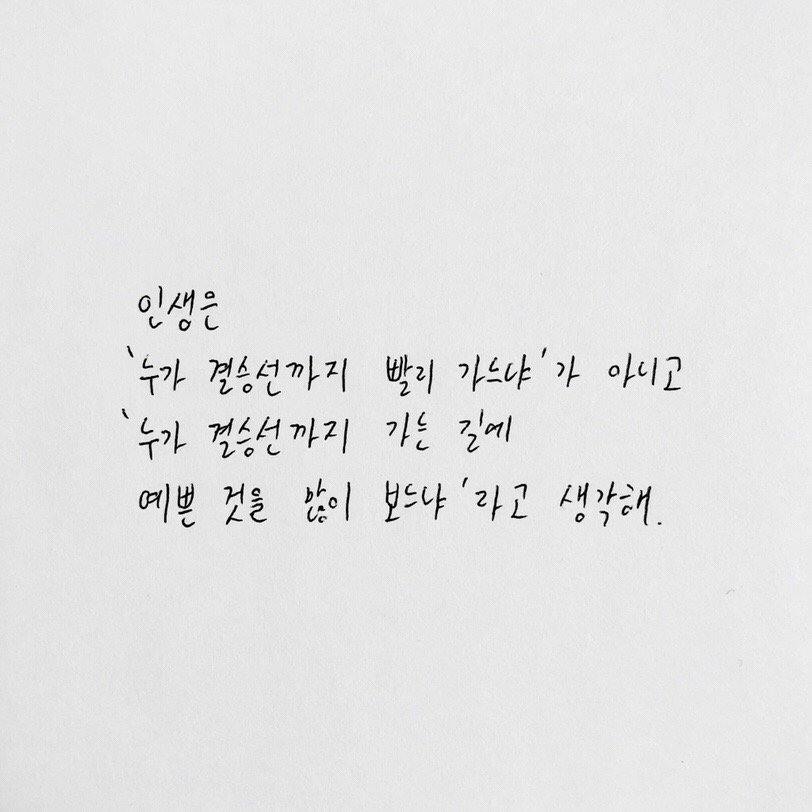 인생은
'누가 결승선까지 빨리 가느냐'가 아니고
'누가 결승선까지 가는 길에
예쁜 것을 많이 보느냐'라고 생각해.